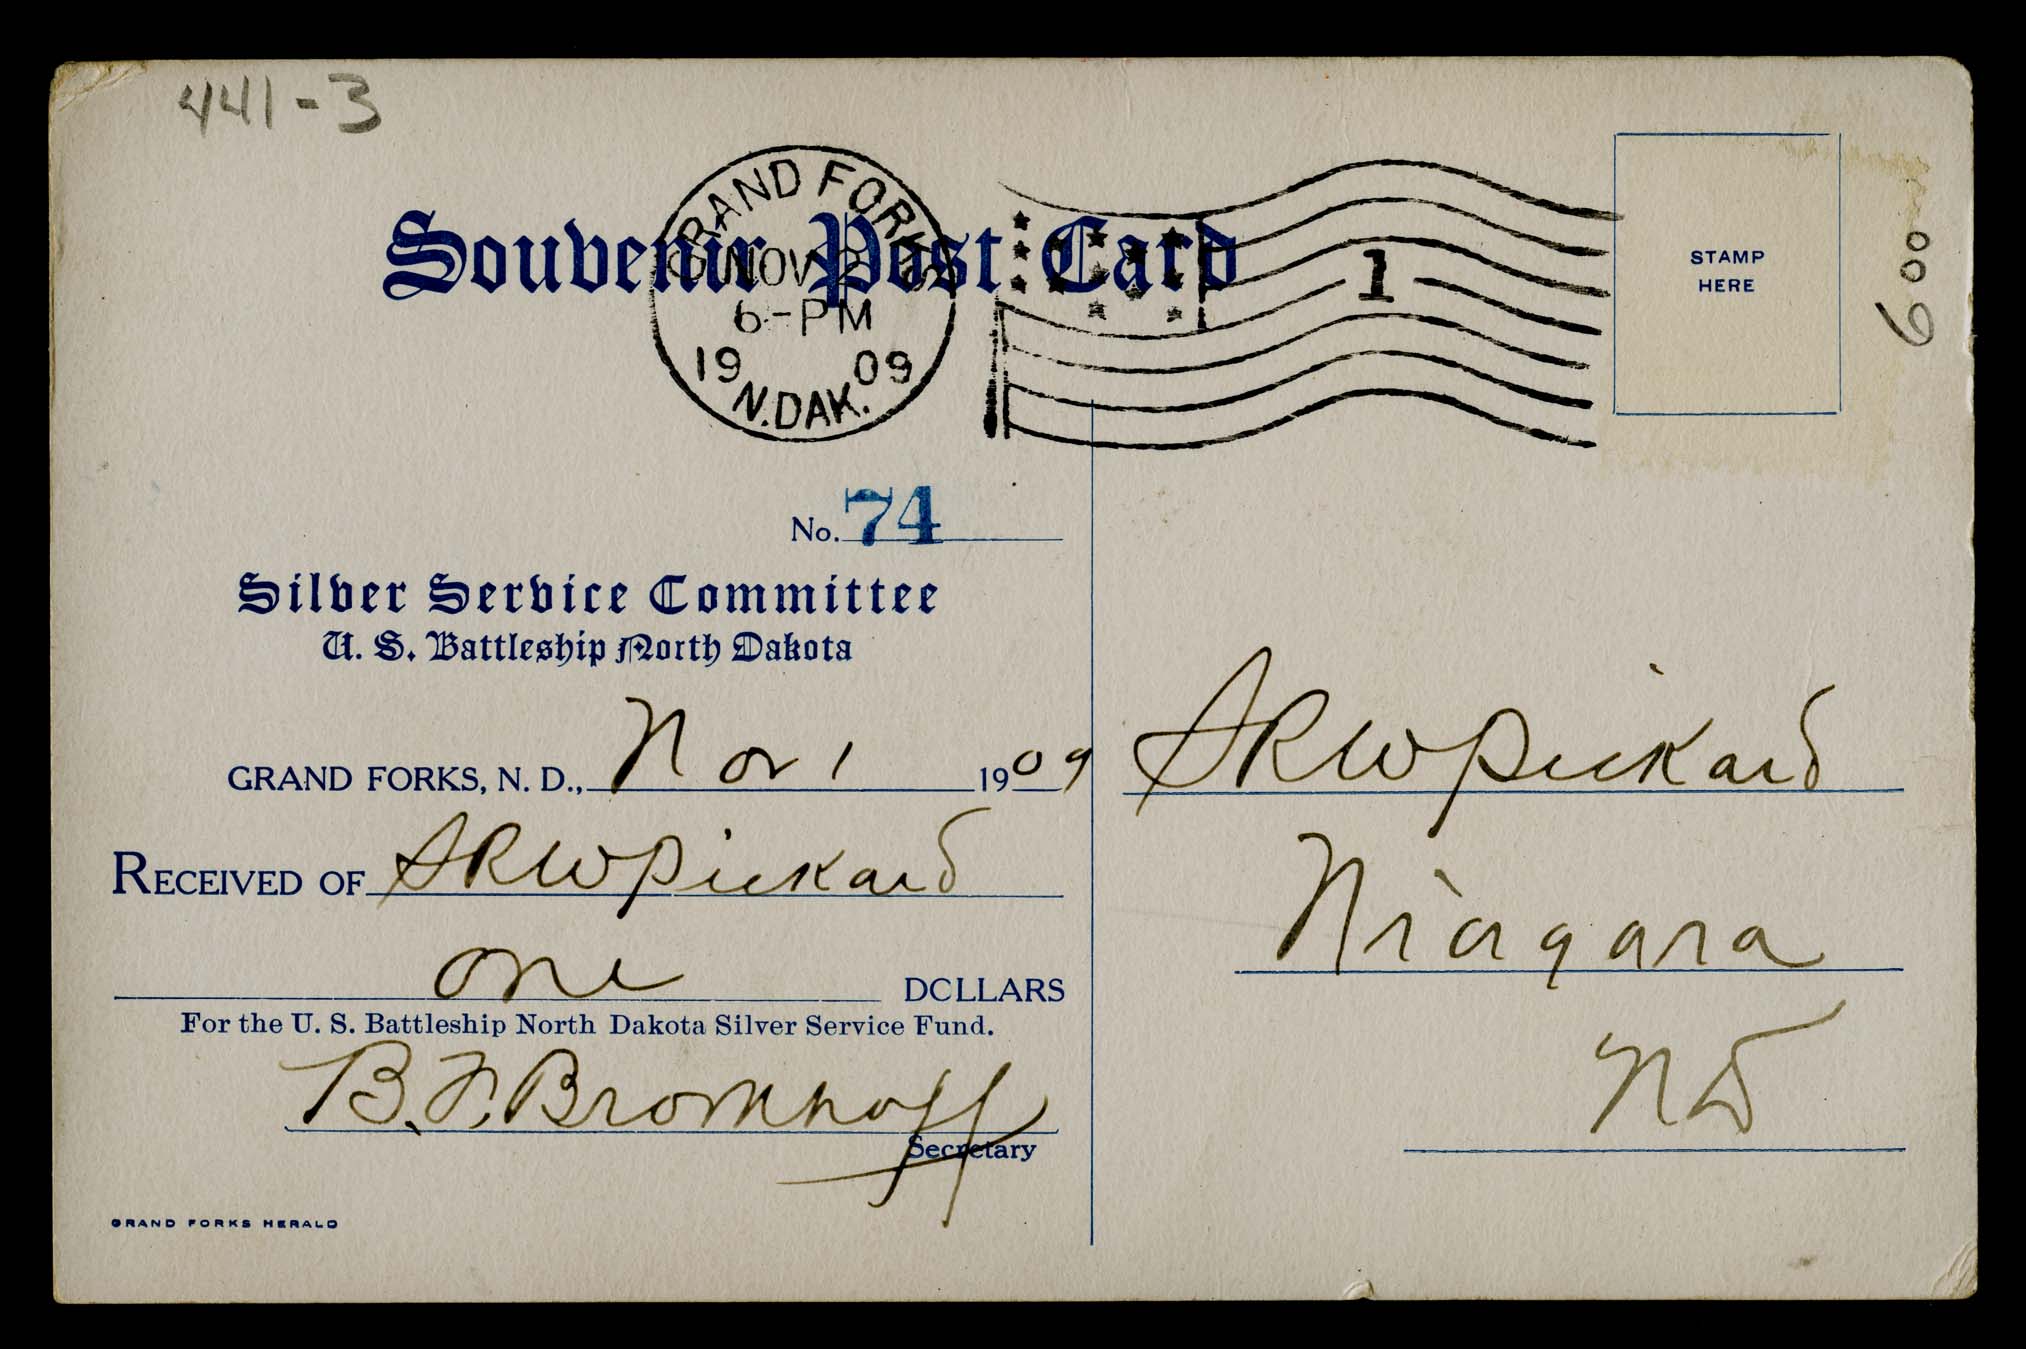 441-3
GRAND FORKS
NOV 2
6-PM
19 09
N.DAK.
1
Souvenir Post Card
STAMP
HERE
600
No. 74
Silver Service Committee
U. S. Battleship North Dakota
GRAND FORKS, N. D., Nov 1 1909
RECEIVED OF SRW Pickard
one DOLLARS
For the U. S. Battleship North Dakota Silver Service Fund.
B. F. Bronkhoff
Secretary
GRAND FORKS HERALD
SRW Pickard
Niagara
ND